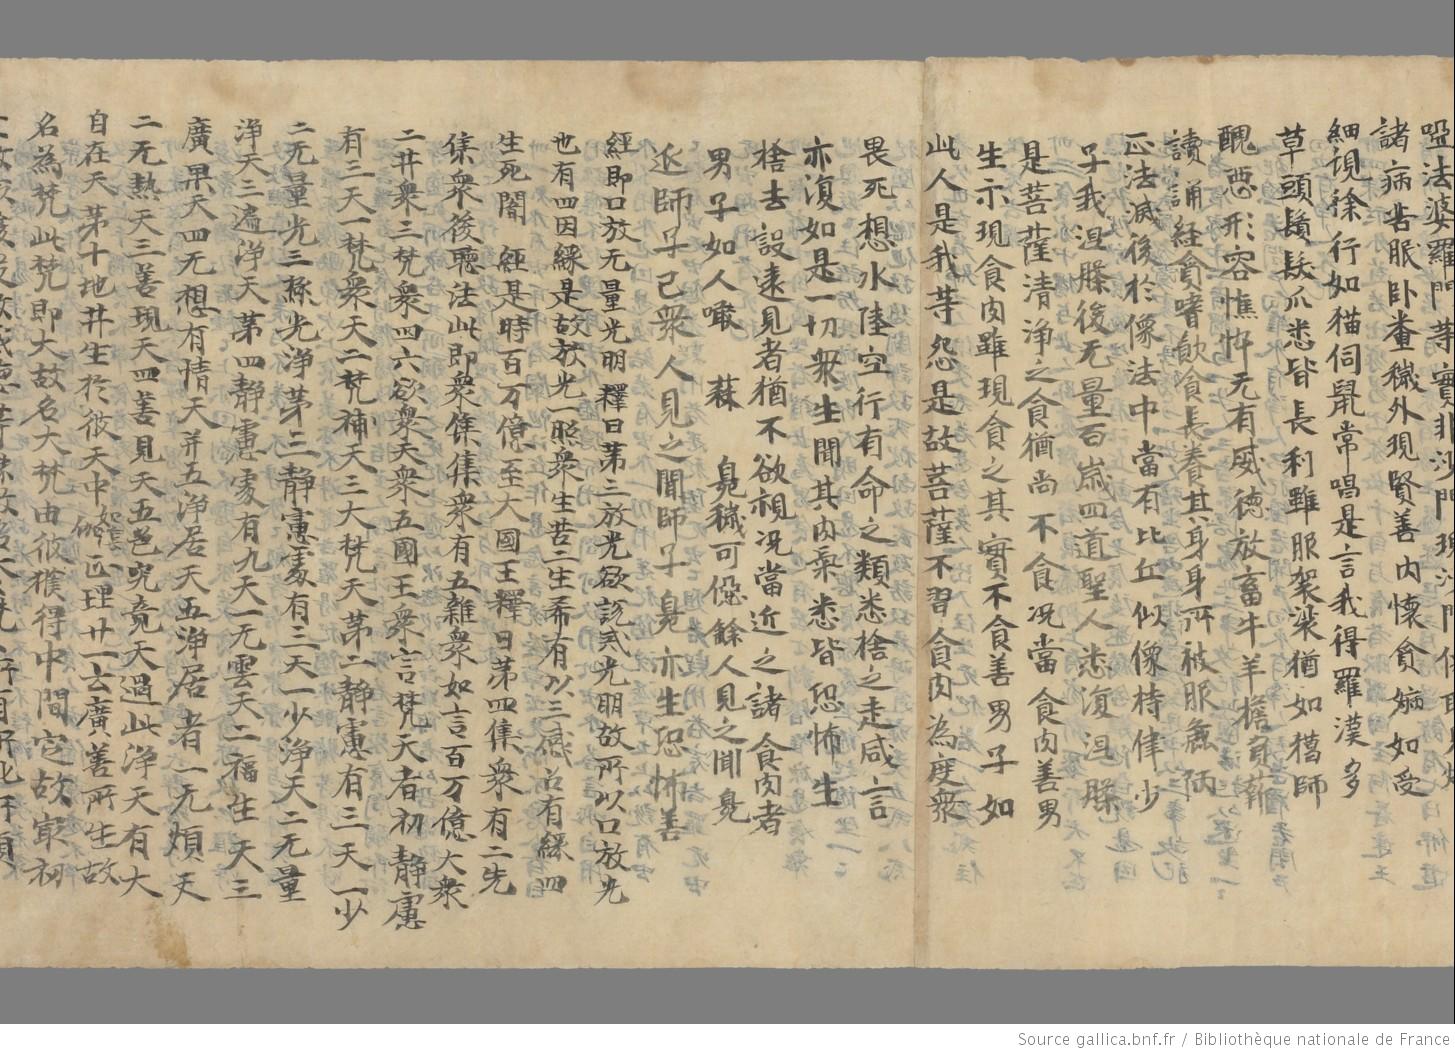 諸病苦眠卧糞穢外現賢善内懷貪嫉如受
細視徐行如猫伺鼠常唱是言我得羅漢多
草頭鬚髮爪悉皆長利雖服袈裟猶如獦師
醜惡形容憔悴无有威德放畜牛羊擔負薪
讀誦經貪嗜飲食長養其身身所被服麁陋
正法滅後於像法中當有比丘似像持律少
子我涅膝後无量百歲四道聖人悉復涅膝
是菩薩清淨之食猶尚不食況當食肉善男
生示現食肉雖現食之其實不食善男子如
此人是我等怨是故菩薩不習食肉為度衆
畏死想水陸空行有命之類悉捨之走咸言
亦復如是一切衆生聞其肉氣悉皆恐怖生
捨去設遠見者猶不欲視況當近之諸食肉者
男子如人噉 蒜 臰穢可惡餘人見之聞臰
近師子已衆人見之聞師子臰亦生恐怖善
經即口放无量光明釋曰第三放光欲説貳光明故所以口放光
也有四因緣是故放光一照衆生苦二生希有以三感召有緣四
生死闇 經是時百万億至大國王釋曰第四集衆有二先
集衆後聽法此即衆集集衆有五雜衆如言百万億大衆
二井衆三梵衆四六欲衆天衆五國王衆言梵天者初静慮
有三天一梵衆天二梵補天三大梵天第二静慮有三天一少
二无量光三極光淨第三静慮處有三天一少淨天二无量
淨天三遍淨天第四靜慮處有九天一无雲天二福生天三
廣果天四无想有情天并五淨居天五淨居者一无煩天
二无熱天三善現天四善見天五色究竟天過此淨天有大
自在天第十地井生於彼天中 正理廿一云廣善所生故
名為梵此梵即大故名大梵由彼獲得中間定故冣初
Source gallica.bnf.fr / Bibliothèque nationale de France